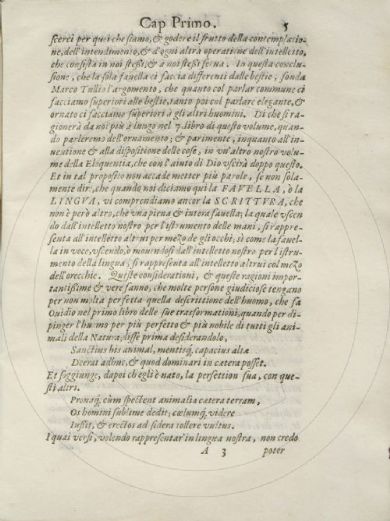 Cap Primo. 5
scerci per quei che siamo, & godere il frutto della contemplatio-
ne, dell'intendimento, & d'ogni altra operatione dell'intelletto,
che consista in noi stessi, & a noi stessi serua. In questa conclu-
sione, che la sola fauella ci faccia differenti dalle bestie, fonda
Marco Tullio l'argomento, che quanto col parlar commune ci
facciamo superiori alle bestie, tanto poi col parlare elegante, &
ornato ci facciamo superiori à gli altri huomini. Di che si ra-
gionerà da noi più à lungo nel 7. libro di questo volume, quan-
do parleremo dell'ornamento; & parimente, inquanto all'in-
uentione & alla dispositione delle cose, in vn'altro nostro volu-
me della Eloquentia, che con l'aiuto di Dio vscirà doppo questo.
Et in tal proposito non accade metter più parole, se non sola-
mente dir, che quando noi diciamo qui la FAVELLA, ò la
LINGVA, vi comprendiamo ancor la SCRITTVRA, che
non è però altro, che vna piena & intera fauella; la quale vscen-
do dall'intelletto nostro per l'istrumento delle mani, si rappre-
senta all'intelletto altrui per mezo de gli occhi, sì come la fauel-
la in voce, vscendo, ò mouendosi dall'intelletto nostro per l'istru-
mento della lingua, si rappresenta all'intelletto altrui col mezo
dell'orecchie. Queste considerationi, & queste ragioni impor-
tantissime & vere fanno, che molte persone giudiciose tengano
per non molta perfetta quella descrittione dell'huomo, che fa
Ouidio nel primo libro delle sue trasformationi, quando per di-
pinger l'huomo per più perfetto & più nobile di tutti gli ani-
mali della Natura, disse prima desiderandolo,
Sanctius his animal, mentisq́; capacius altæ
Deerat adhuc, & quod dominari in cætera posset.
Et soggiunge, dapoi ch'egli è nato, la perfettion sua, con que-
sti altri.
Pronaq́; cùm spectent animalia cætera terram,
Os homini sublime dedit; cœlumq́; videre
Iussit, & erectos ad sidera tollere vultus.
I quai versi, volendo rappresentar'in lingua nostra, non credo
A 3 poter